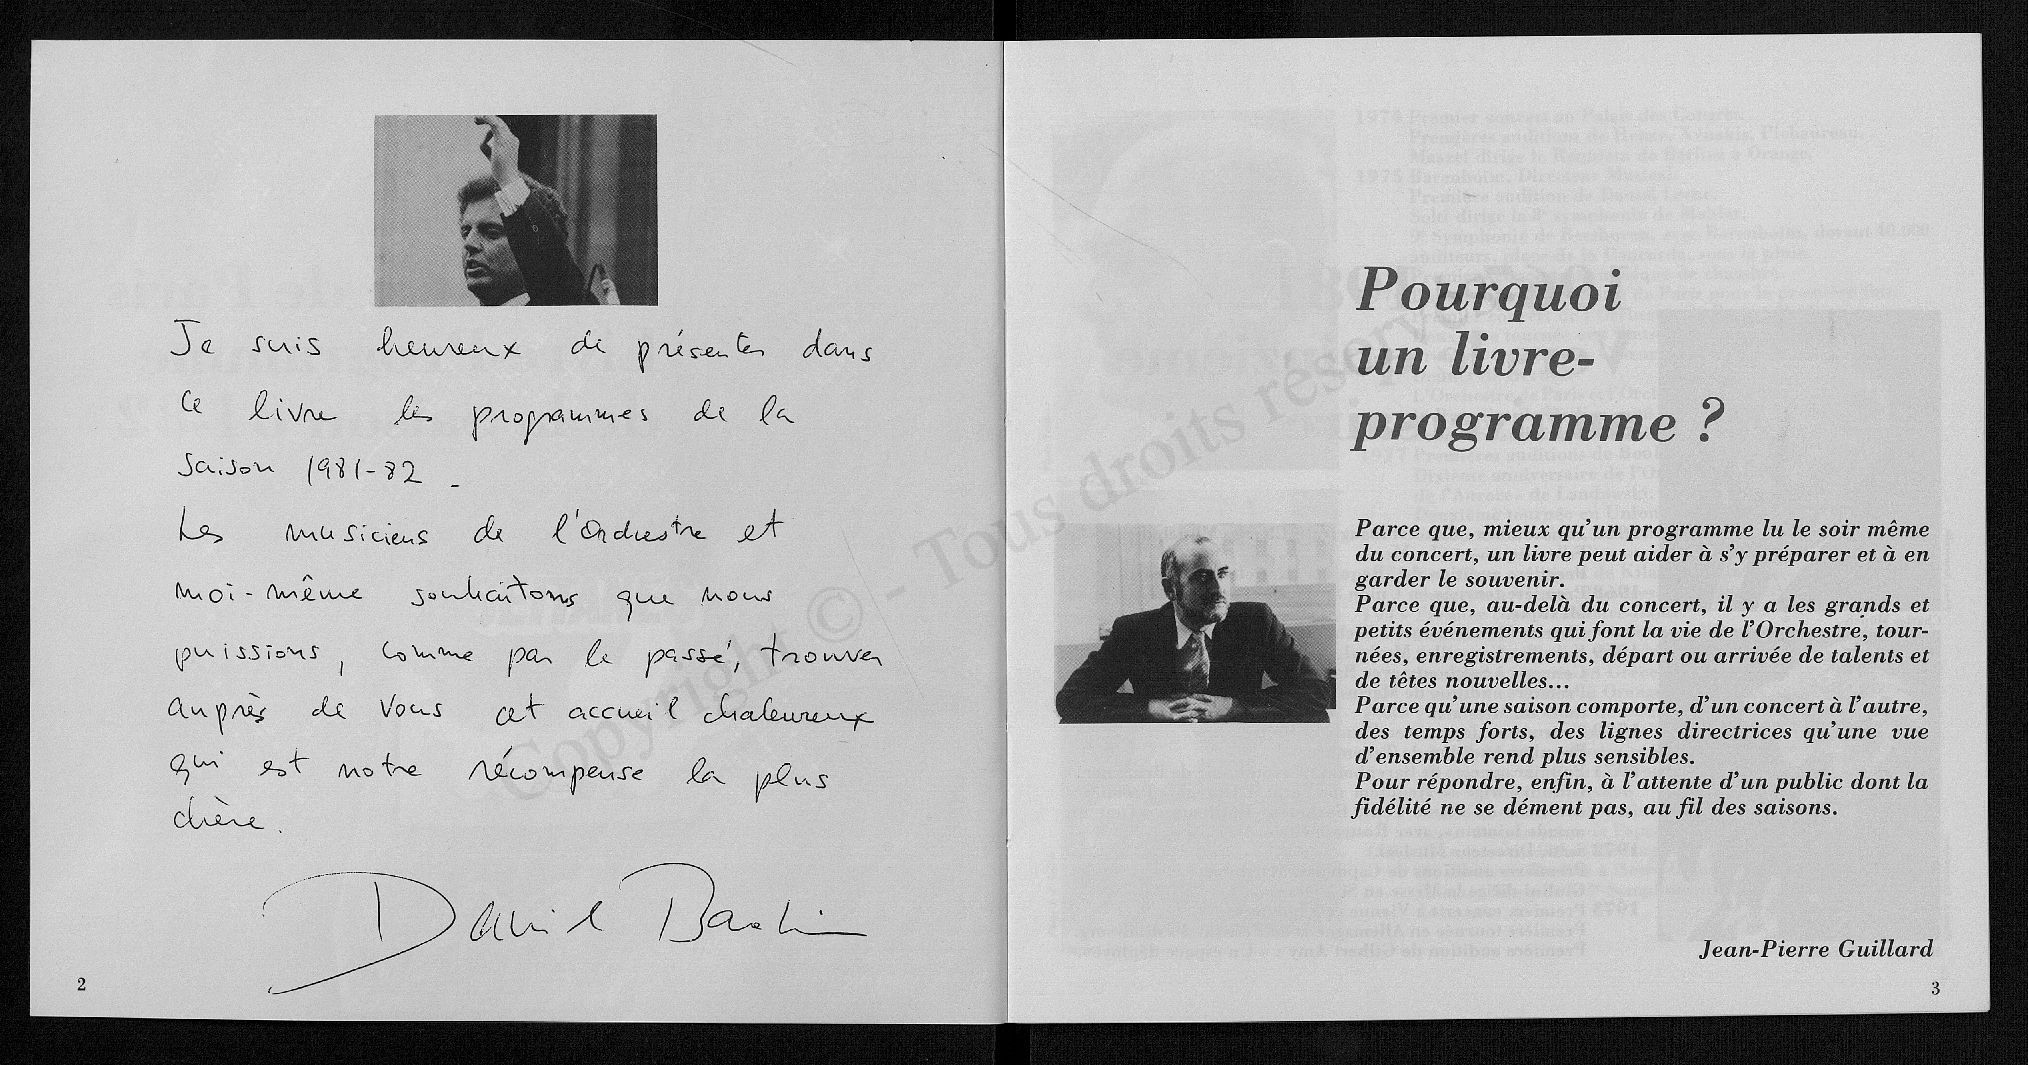 Je suis heureux de présenter dans
ce livre les programmes de la
saison 1981-82.
Les musiciens de l'Orchestre et
moi-même souhaitons que nous
puissions, comme par le passé, trouver
auprès de vous cet accueil chaleureux
qui est notre récompense la plus
chère.
Daniel
2
Pourquoi
un livre-
programme ?
Parce que, mieux qu'un programme lu le soir même
du concert, un livre peut aider à s'y préparer et à en
garder le souvenir.
Parce que, au-delà du concert, il y a les grands et
petits événements qui font la vie de l'Orchestre, tour-
nées, enregistrements, départ ou arrivée de talents et
de têtes nouvelles...
Parce qu'une saison comporte, d'un concert à l'autre,
des temps forts, des lignes directrices qu'une vue
d'ensemble rend plus sensibles.
Pour répondre, enfin, à l'attente d'un public dont la
fidélité ne se dément pas, au fil des saisons.
Jean-Pierre Guillard
3
Copyright © - Tous droits réservés